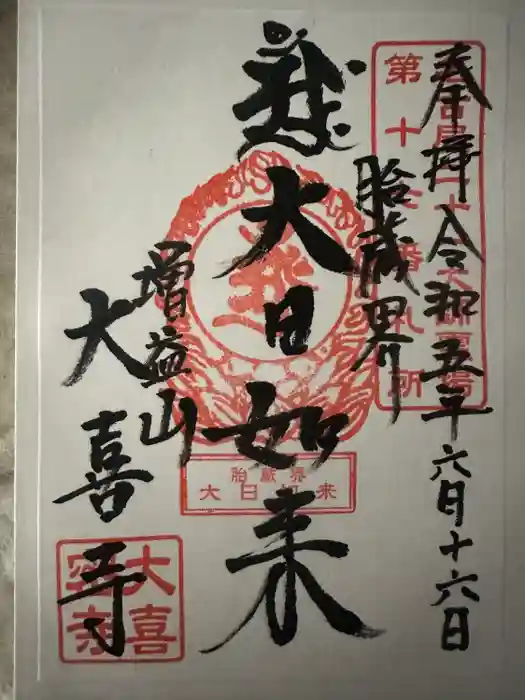 奉拝 令和五年六月十六日
第十七番札所
胎蔵界
大日如来
胎蔵界
大日如来
増益山
大喜寺
大喜
密寺